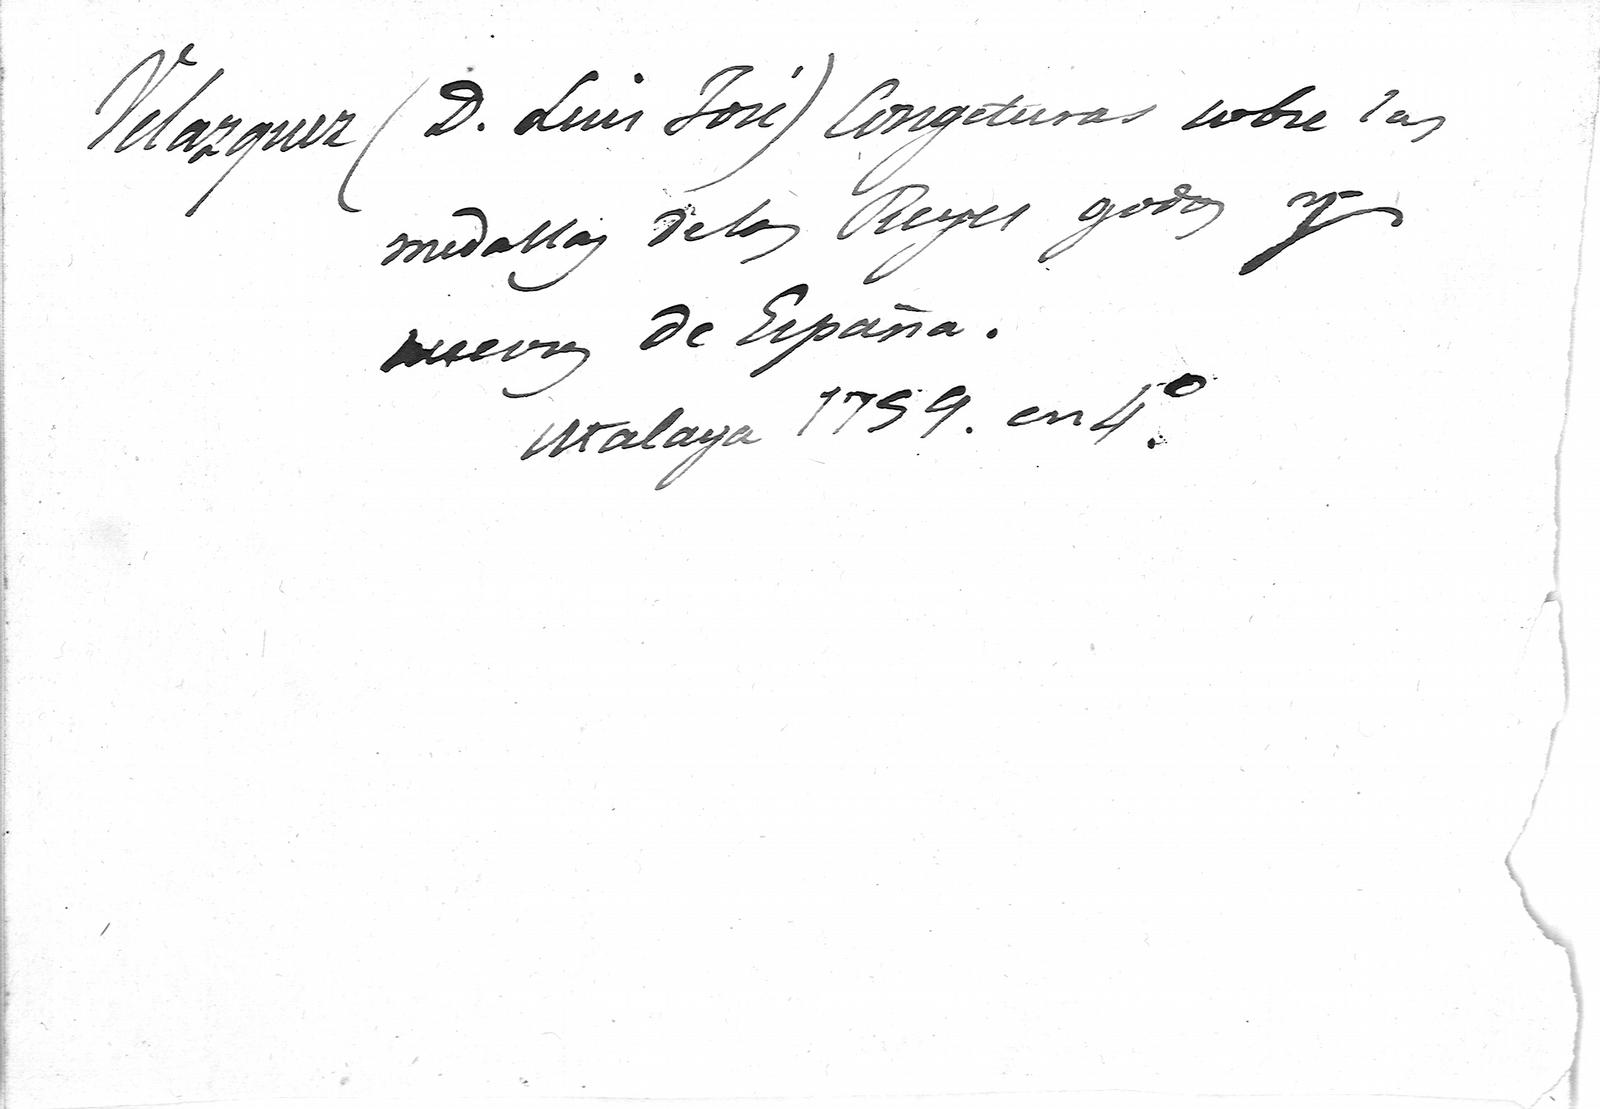 Velazquez (D. Luis José) Congeturas sobre las
medallas de los Reyes godos y
suevos de España.
Malaga 1759. en 4º.